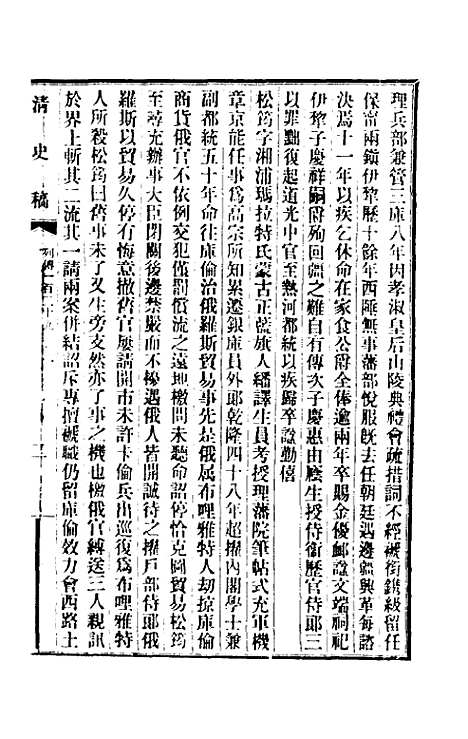 理兵部兼管三庫八年因孝淑皇后山陵典禮會疏措詞不經褫銜鐫級留任
保甯兩鎮伊犂歷十餘年西陲無事藩部悅服旣去任朝廷遇邊疆興革每諮
決焉十一年以疾乞休命在家食公爵全俸逾兩年卒賜金優卹諡文端祠祀
伊犂子慶祥嗣爵殉回疆之難自有傳次子慶惠由廕生授侍衛歷官侍郎三
以罪黜復起道光中官至熱河都統以疾歸卒諡勤僖
松筠字湘浦瑪拉特氏蒙古正藍旗人繙譯生員考授理藩院筆帖式充軍機
章京能任事爲高宗所知累遷銀庫員外郎乾隆四十八年超擢內閣學士兼
副都統五十年命往庫倫治俄羅斯貿易事先是俄屬布哩雅特人劫掠庫倫
商貨俄官不依例交犯僅罰償流之遠地檄問未聽命詔停恰克圖貿易松筠
至尋充辦事大臣閉關後邊禁嚴而不擾遇俄人皆開誠待之擢戶部侍郎俄
羅斯以貿易久停有悔意撤舊官屢請開市未許卡倫兵出巡復爲布哩雅特
人所殺松筠因舊事未了又生旁支然亦了事之機也檄俄官縛送三人親訊
於界上斬其二流其一請兩案併結詔斥專擅褫職仍留庫倫效力會西路土
清史稿
列傳一百二十九